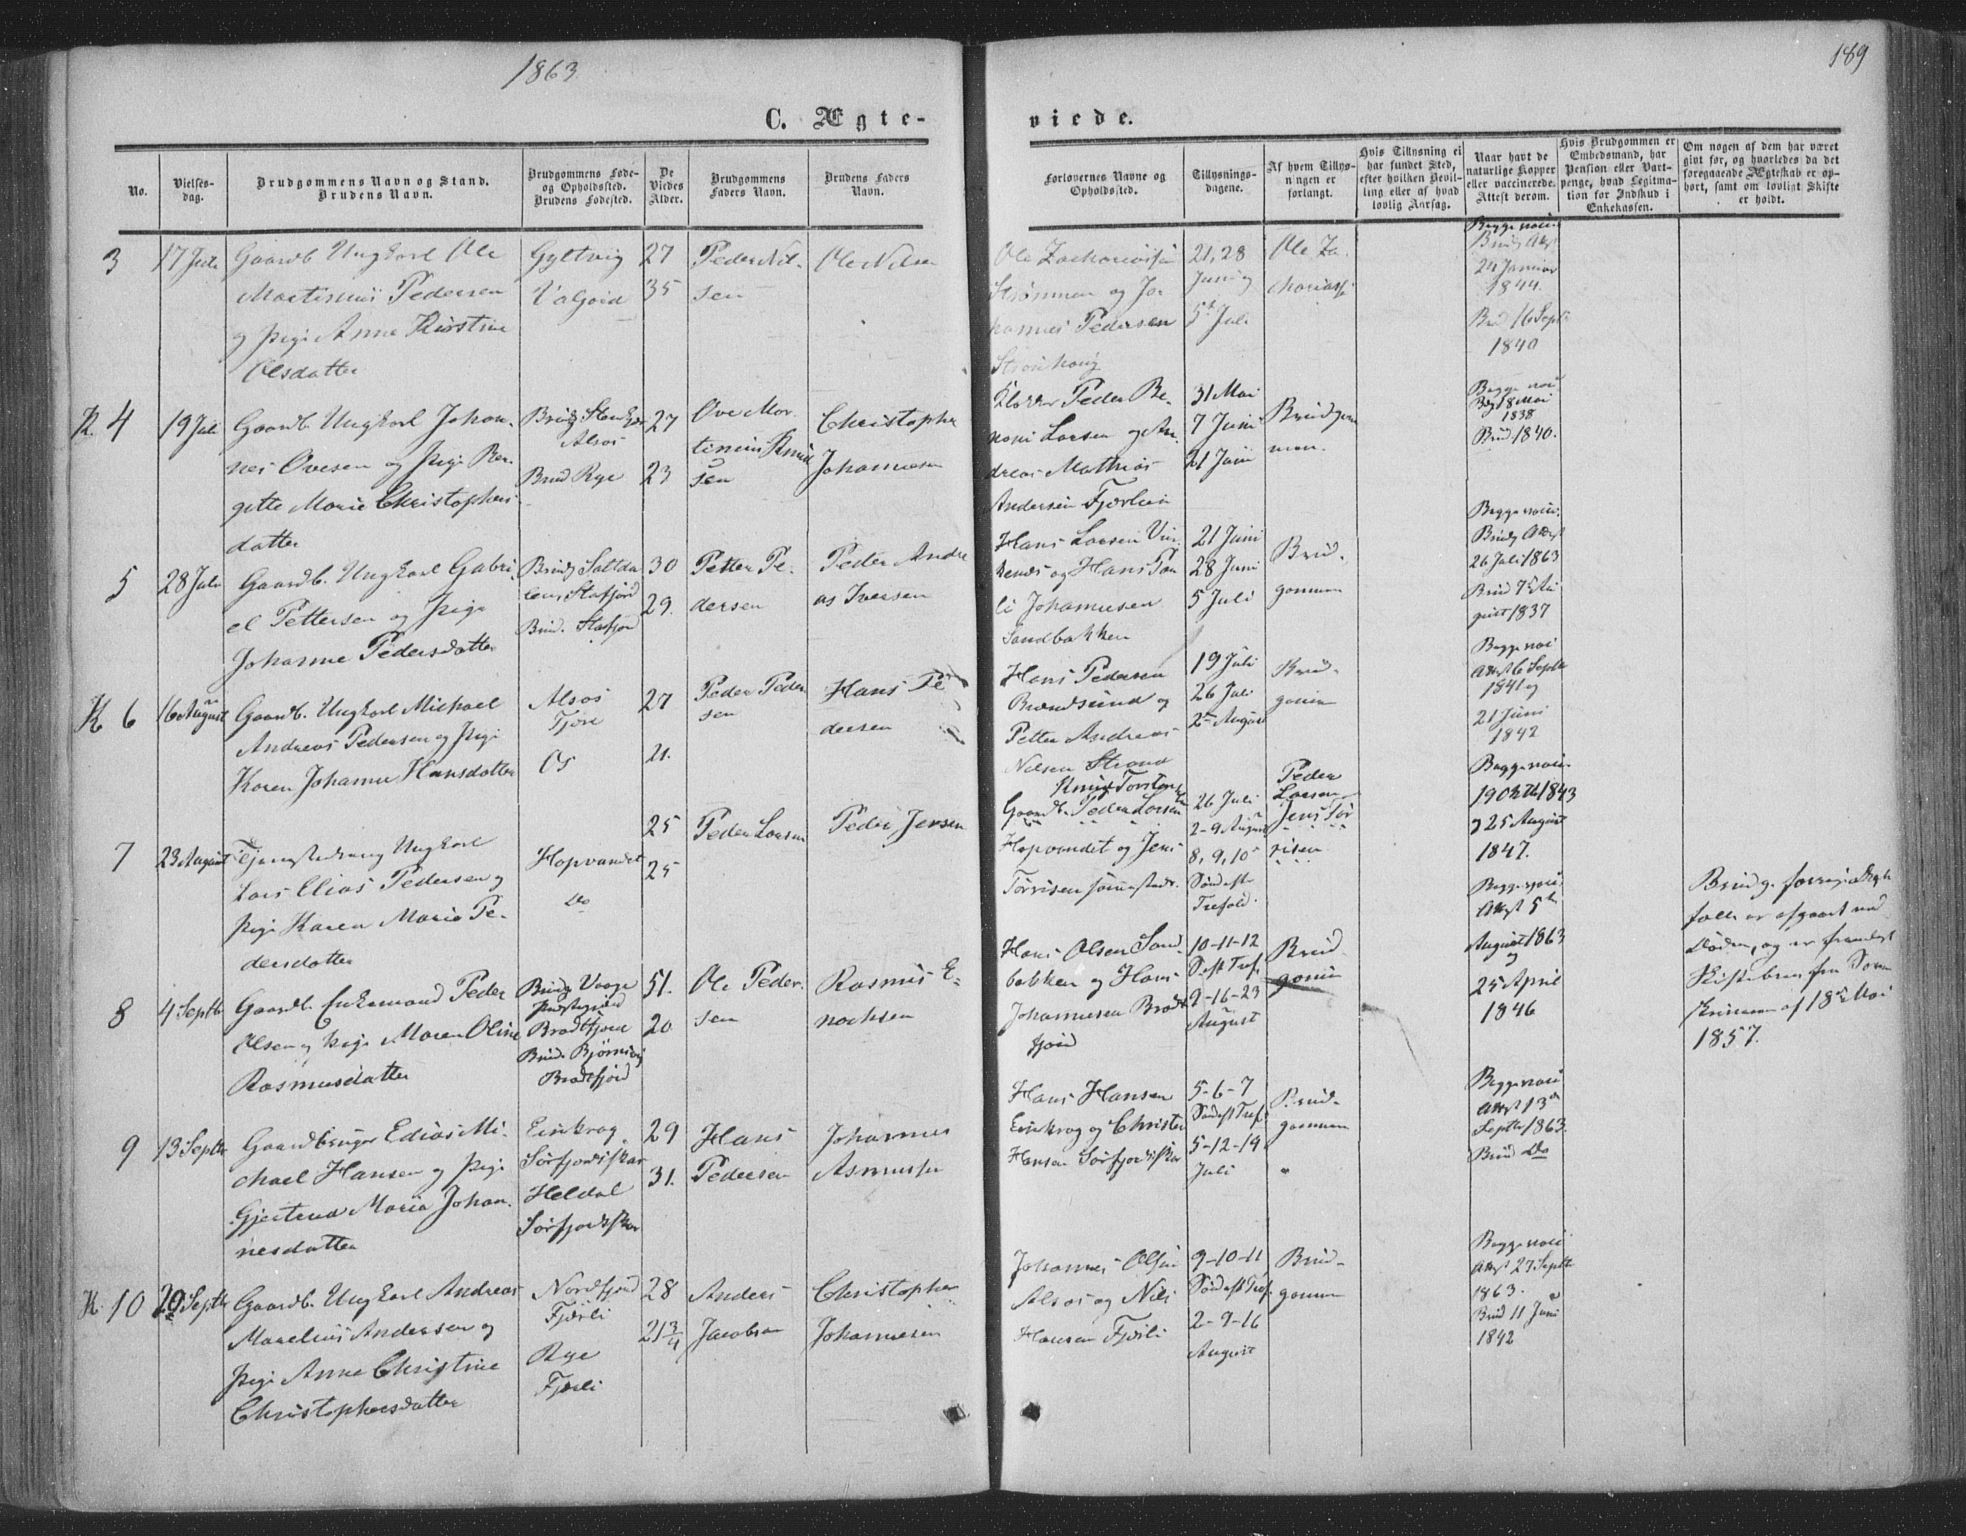 1863
189
C. Ægte-
viede.
No.
Vielses-
dag.
Brudgommens Navn og Stand.
Brudens Navn.
Brudgommens Føde-
og Opholdssted.
Brudens Fødested.
De
Viedes
Alder.
Brudgommens
Faders Navn.
Brudens Faders
Navn.
Forlovernes Navne og
Opholdssted.
Tillysnings-
dagene.
Af hvem Tillys-
ningen er
forlangt.
Hvis Tillysning ei
har fundet Sted,
efter hvilken Bevil-
ling eller af hvad
lovlig Aarsag.
Naar havt de
naturlige Kopper
eller vaccinerede.
Attest derom.
Hvis Brudgommen er
Embedsmand, har
Pension eller Vart-
penge, hvad Legitma-
tion for Indskud i
Enkekassen.
Om nogen af dem har været
givt før, og hvorledes da det
foregaaende Ægteskab er op-
hørt, samt om lovligt Skifte
er holdt.
3
17 Juli
Gaardb. Ungkarl Ole
Martinus Pedersen
og Pige Anne Kirstine
Olsdatter
Gyltvig
Valsjord
27
35
Peder Nil-
sen
Ole Nilsen
Ole Zachariassen
Strømmen og Jo
hannes Pedersen
21, 28
Juni og
5te Juli
Ole Za
chariass
Begge vacc
24 Januar
1844.
Brud 16 Septb
1840
K. 4
19 Juli
Gaardb. Ungkarl Johan-
nes Ovesen og Pige Ber-
gitte Marie Christophers-
datter
Alsos
Brud Rye
27
23
Ove Mar-
tinius Knud
sen
Christopher
Johannesen
Klokker Peder Be-
noni Larsen og An-
dreas Mathias
Andersen Fjærlien
31 Mai
7 Juni
21 Juni
Brudgom
men.
Begge vacc
18 Mai
1838
Brud 1840.
5
28 Juli
Gaardb. Ungkarl Gabri-
el Pettersen og Pige
Johanne Pedersdatter
Brudg Saltda
len, Stafjord
Brud. Stafjord
30
29.
Petter Pe-
dersen
Peder Andre
as Iversen
Hans Larsen Vin-
kenes og Hans Pau
li Johannesen
Sandbakken
21 Juni
28 Juni
5 Juli
Brud-
gommen
Begge vacc.
Brudg Attst
26 Juli 1863
Brud 7de Au
gust 1837
K 6
16 August
Gaardb. Ungkarl Michael
Andreas Pedersen og Pige
Karen Johanne Hansdatter
Alsos
Fjære
Os
27
21.
Peder Peder
sen
Hans Pe
dersen
Hans Pedersen
Brændsund og
Petter Andreas
Nilsen Strand
19 Juli
26 Juli
2den August
Brud-
gomm
Begge vacc
Attst 6 Septb
1841 og
21 Juni
1842
7
23 August
Ungkarl
Lars Elias Pedersen og
Pige Karen Maria Pe-
dersdatter
Hopvandet
Do
25
25
Peder Larsen
Peder Jensen
Gaardb. Peder Larsen
Hopvandet og Jens
Tørrisen
26 Juli
2-9 August
8, 9, 10
Sønd. eft
Trefold.
Peder
Larsen
Jens Tør
risen
Begge vacc.
19 Oktb 1843
25 August
1847.
8
4 Septb
Gaardb. Enkemand Peder
Olsen og Pige Maren Oline
Rasmusdatter
Brudg Vaage
Præstegjeld
Brodtfjord
Brud. Bjørnsvig
Brodtfjord
51.
20
Ole Peder-
sen
Rasmus E-
nochsen
Hans Olsen Sand
bakken og Hans
Johannesen Brodt
fjord
10-11-12
Sø eft Tref.
9-16-23
August
Brud-
gomm
Begge vacc
Attst 5te
August 1863
og
25 April
1846
Brudg. forrige Ægte
fælle er afgaaet ved
Døden, og er fremlagt
Skiftebrev fra Soren
skriveren af 18de Mai
1857.
9
13 Septb
Gaardbruger Edias Mi-
chael Hansen og Pige
Gjertrud Maria Johan-
nesdatter
Eenkrog
Sørfjordskar
Heldal
Sørfjordskar
29
31.
Hans
Pedersen
Johannes
Asmussen
Hans Hansen
Eenkrog og Christen
Hansen Sørfjordskar
5-6-7
Sønd eft Tref
5-12-19
Juli
Brud-
gommen
"
Begge vacc
Attst 13de
Septb 1863.
Brud Do
K. 10
20 Septb
Gaardb. Ungkarl Andreas
Marelius Andersen og
Pige Anne Christine
Christophersdatter
Nordfjord
Fjærli
Rye
Fjærli
28
21 3/4
Anders
Jacobsen
Christopher
Johannesen
Johannes Olsen
Alsos og Nils
Hansen Fjærli
9-10-11
Sønd eft Tref.
2-9-16
August
Brud-
gommen
Begge vacc
Attst 27 Septb
1863.
Brud 11 Juni
1842